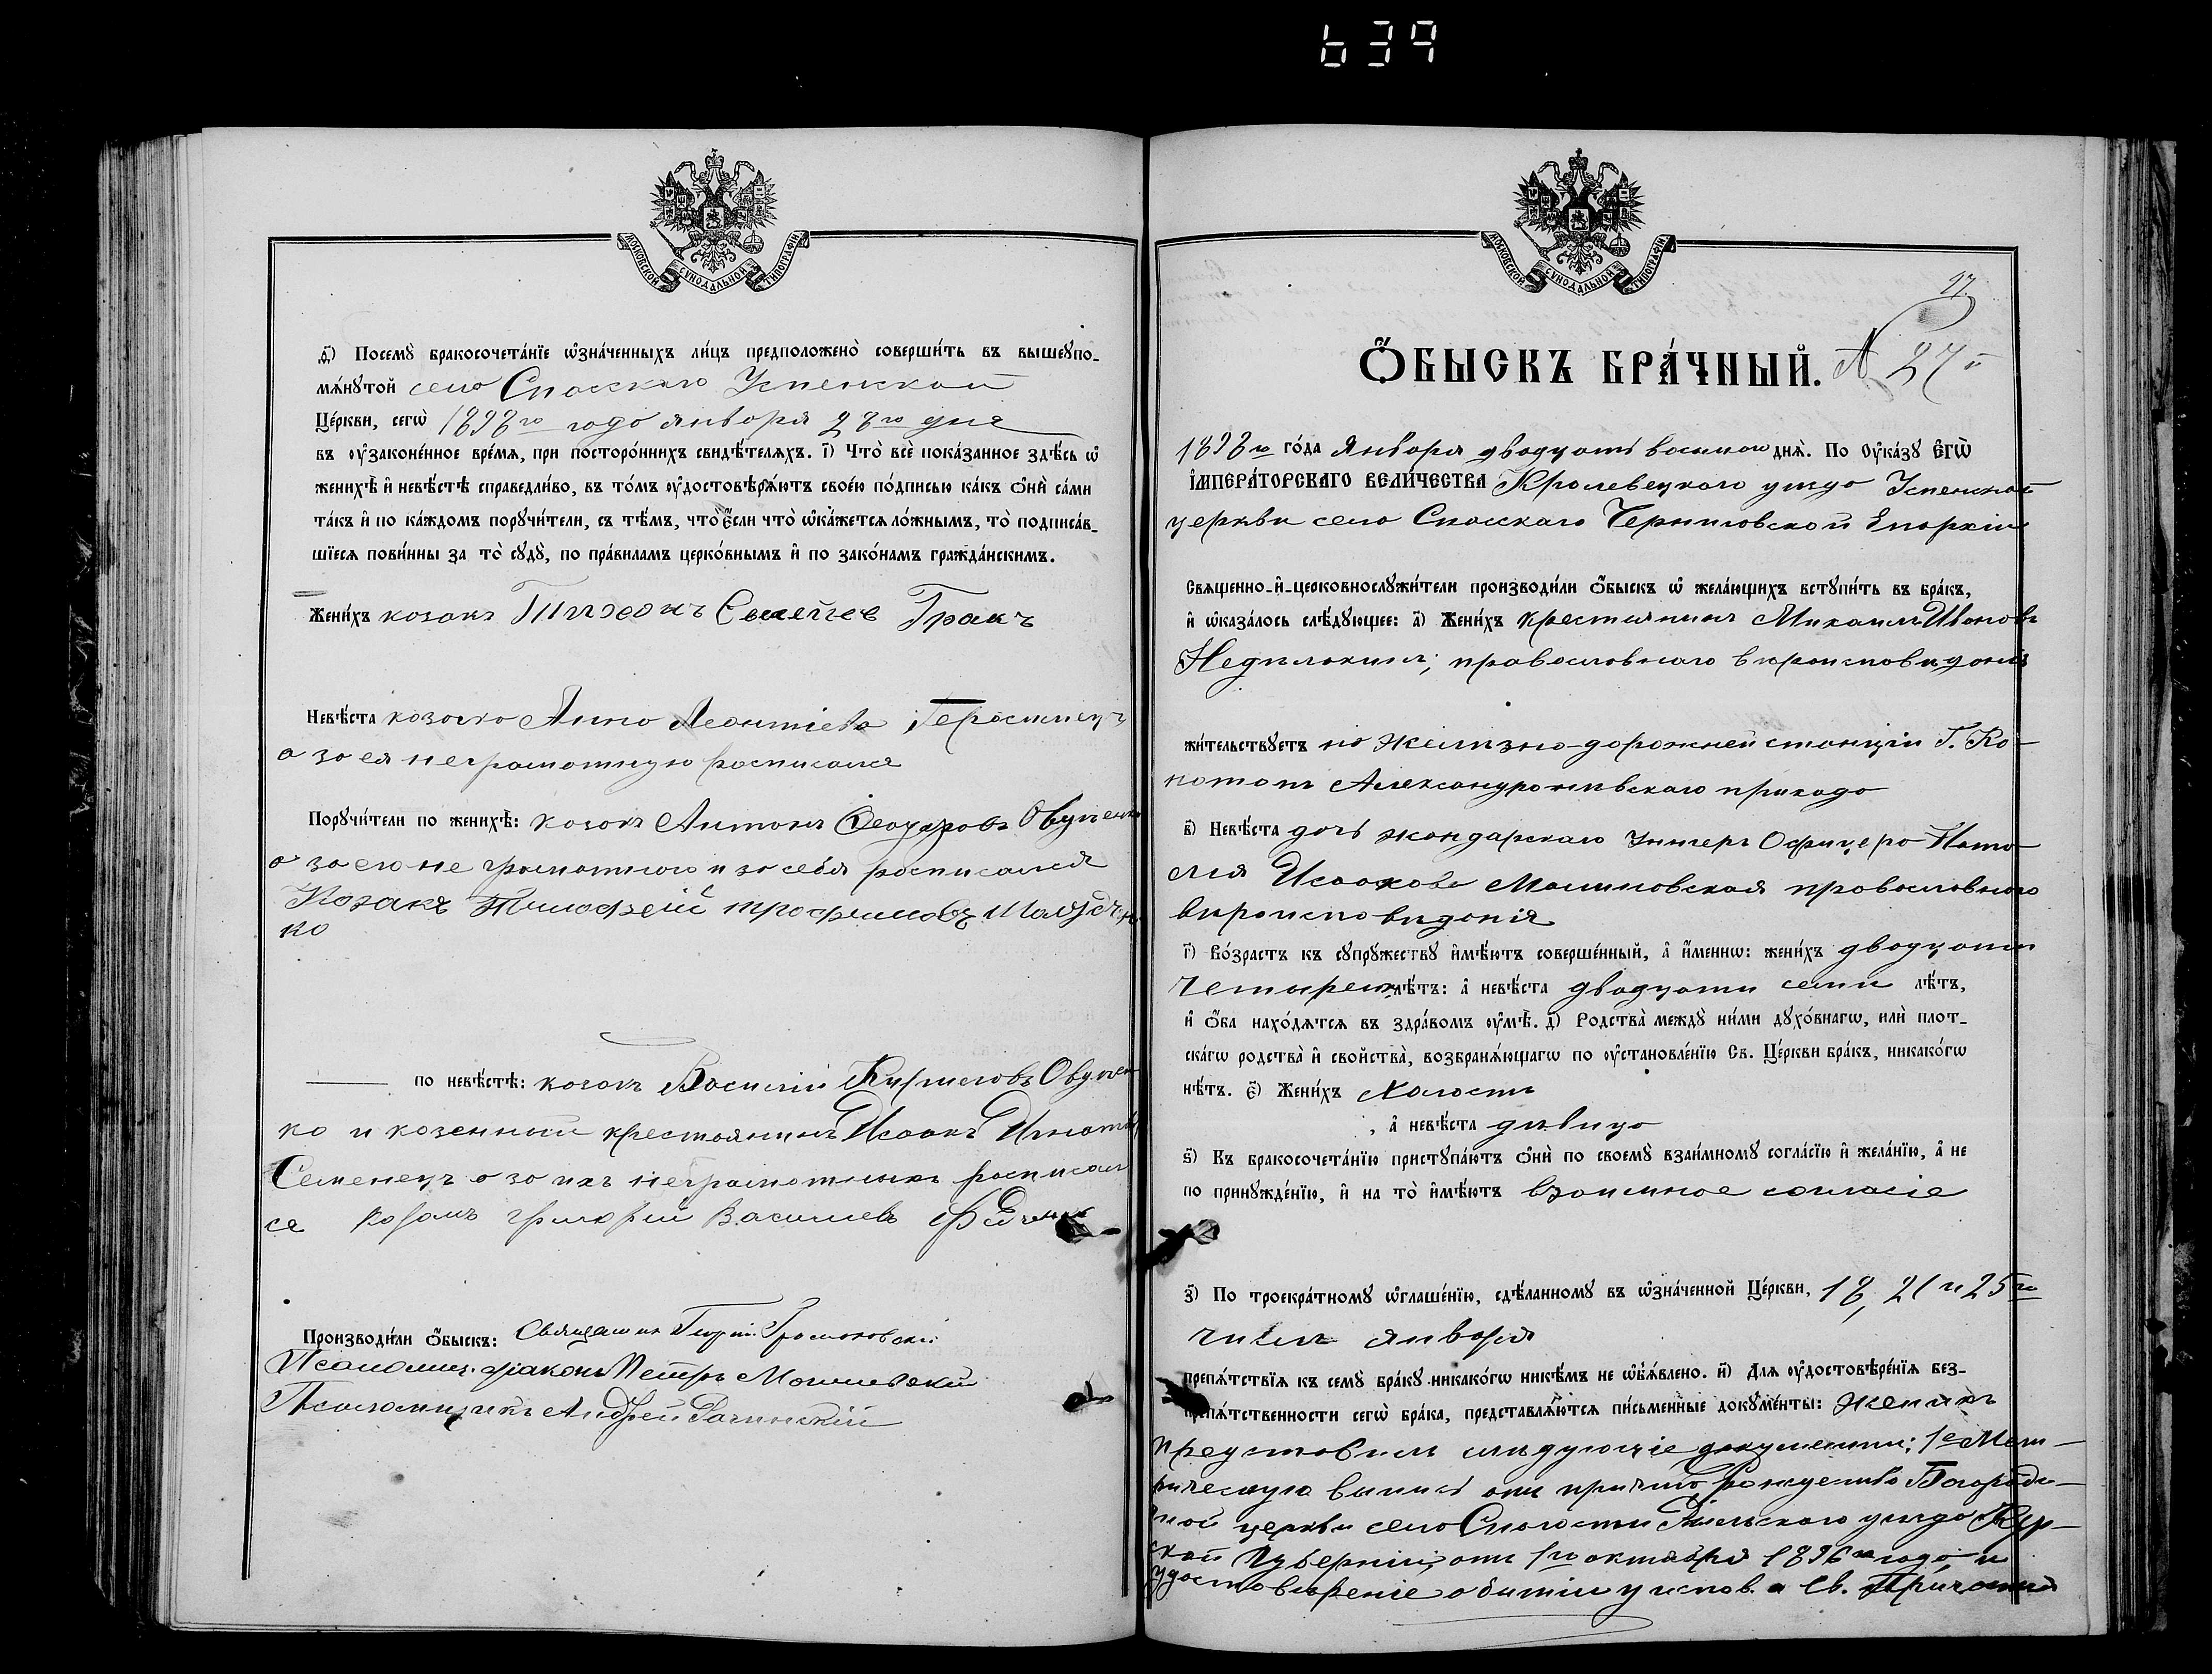 639
МОСКОВСКОЙ СѴНОДАЛЬНОЙ ТИПОГРАФІИ
ѳ҃) Посемꙋ̀ бракосочета́нїе ѡ҆зна́ченныхъ ли́цъ предположено̀ соверши́ть въ вышеꙋпо-
мѧ́нꙋтой села Спасскаго Успенской
Це́ркви, сегѡ̀ 1898го года января 28го дня
въ ᲂу҆законе́нное вре́мѧ, при посторо́ннихъ свидѣ́телѧхъ. і҃) Что̀ всѐ пока́занное здѣ́сь ѡ҆
женихѣ̀ и҆ невѣ́стѣ справедли́во, въ то́мъ ᲂу҆достовѣрѧ́ютъ свое́ю по́дписью ка́къ ѻ҆нѝ са́ми
та́къ и҆ по ка́ждомъ порꙋчи́тели, съ тѣ́мъ, что̀ є҆́сли что̀ ѡ҆ка́жетсѧ ло́жнымъ, то̀ подписа́в-
шїесѧ пови́нны за то̀ сꙋдꙋ̀, по пра́виламъ церко́внымъ и҆ по зако́намъ гражда́нскимъ.
Жени́хъ козакъ Гракъ
Невѣ́ста козачка Анна Леонтіева
а за ея неграмотную расписался
Порꙋчи́тели по женихѣ̀: козакъ Антонъ Феодоровъ
а за его не грамотного и за себя расписался
Козакъ Тимофей трофимовъ
ко
по невѣ́стѣ: козакъ Василій
ко и казенный крестьянинъ Исаакъ Игнатіевъ
Семенецъ а за ихъ неграмотныхъ расписал
ся козакъ григорий Василиевъ
Производи́ли ѻ҆́быскъ: Священникъ Георгій
Псаломщ. діаконъ Петръ
Псаломщикъ Андрей Рачинскій
МОСКОВСКОЙ СѴНОДАЛЬНОЙ ТИПОГРАФІИ
27
Ѻ҆́БЫСКЪ БРА́ЧНЫЙ. № 27й
1898го го́да Января двадцать восьмого днѧ̀. По Оу҆ка́зꙋ Є҆ГѠ̀
І҆МПЕРА́ТОРСКАГО ВЕЛИ́ЧЕСТВА Кролевецкого уезда Успенской
церкви села Спасскаго Черниговской Епархіи
Свѧщенно-и҆-церковнослꙋжи́тели производи́ли ѻ҆́быскъ ѡ҆ жела́ющихъ встꙋпи́ть въ бра́къ,
и҆ ѡ҆каза́лось слѣ́дꙋющее: а҃) Жени́хъ крестьянинъ Михаилъ Ивановъ
православного вѣроисповѣданія
жи́тельствꙋетъ на железно-дорожней станціи Г. Ко-
нотопъ Александроневскаго прихода
в҃) Невѣ́ста дочь жандарскаго Унтеръ Офицера Ната-
лія Исаакова Малиновская православного
вѣроисповѣданія
г҃) Во́зрастъ къ сꙋпрꙋ́жествꙋ и҆мѣ́ютъ соверше́нный, а҆ и҆́меннѡ: жени́хъ двадцати
четырехъ лѣ́тъ: а҆ невѣ́ста двадцати семи лѣ́тъ,
и҆ ѻ҆́ба нахо́дѧтсѧ въ здра́вомъ ᲂу҆мѣ̀. д҃) Родства̀ междꙋ̀ ни́ми дꙋхо́внагѡ, и҆лѝ плот-
ска́гѡ родства̀ и҆ свойства̀, возбранѧ́ющагѡ по ᲂу҆становле́нїю Св. Це́ркви бра́къ, никако́гѡ
нѣ́тъ. є҃) Жени́хъ холостъ
, а҆ невѣ́ста дѣвица
ѕ҃) Къ бракосочета́нїю пристꙋпа́ютъ ѻ҆нѝ по своемꙋ̀ взаи́мномꙋ согла́сїю и҆ жела́нїю, а҆ не
по принꙋжде́нїю, и҆ на то̀ и҆мѣ́ютъ взаимное согласіе
з҃) По троекра́тномꙋ ѡ҆глаше́нїю, сдѣ́ланномꙋ въ ѡ҆зна́ченной Це́ркви, 18, 21 и 25го
числъ января
препѧ́тствїѧ къ семꙋ̀ бра́кꙋ никако́гѡ никѣ́мъ не ѡ҆б̾ѧ́влено. и҃) Для ᲂу҆достовѣре́нїѧ без-
препѧ́тственности сегѡ̀ бра́ка, представлѧ́ютсѧ пи́сьменные докꙋме́нты: Женихъ
представилъ слѣдующіе документы; 1е Мет-
рическую выпись отъ причта рождества Богороди-
чной церкви села уезда Кур-
ской Губерніи, отъ 1го октября 1896го года и
удостовѣреніе о бытіи у испов. и Св. Причастія